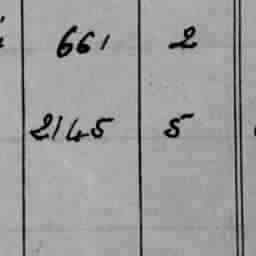 661 2
2145 5